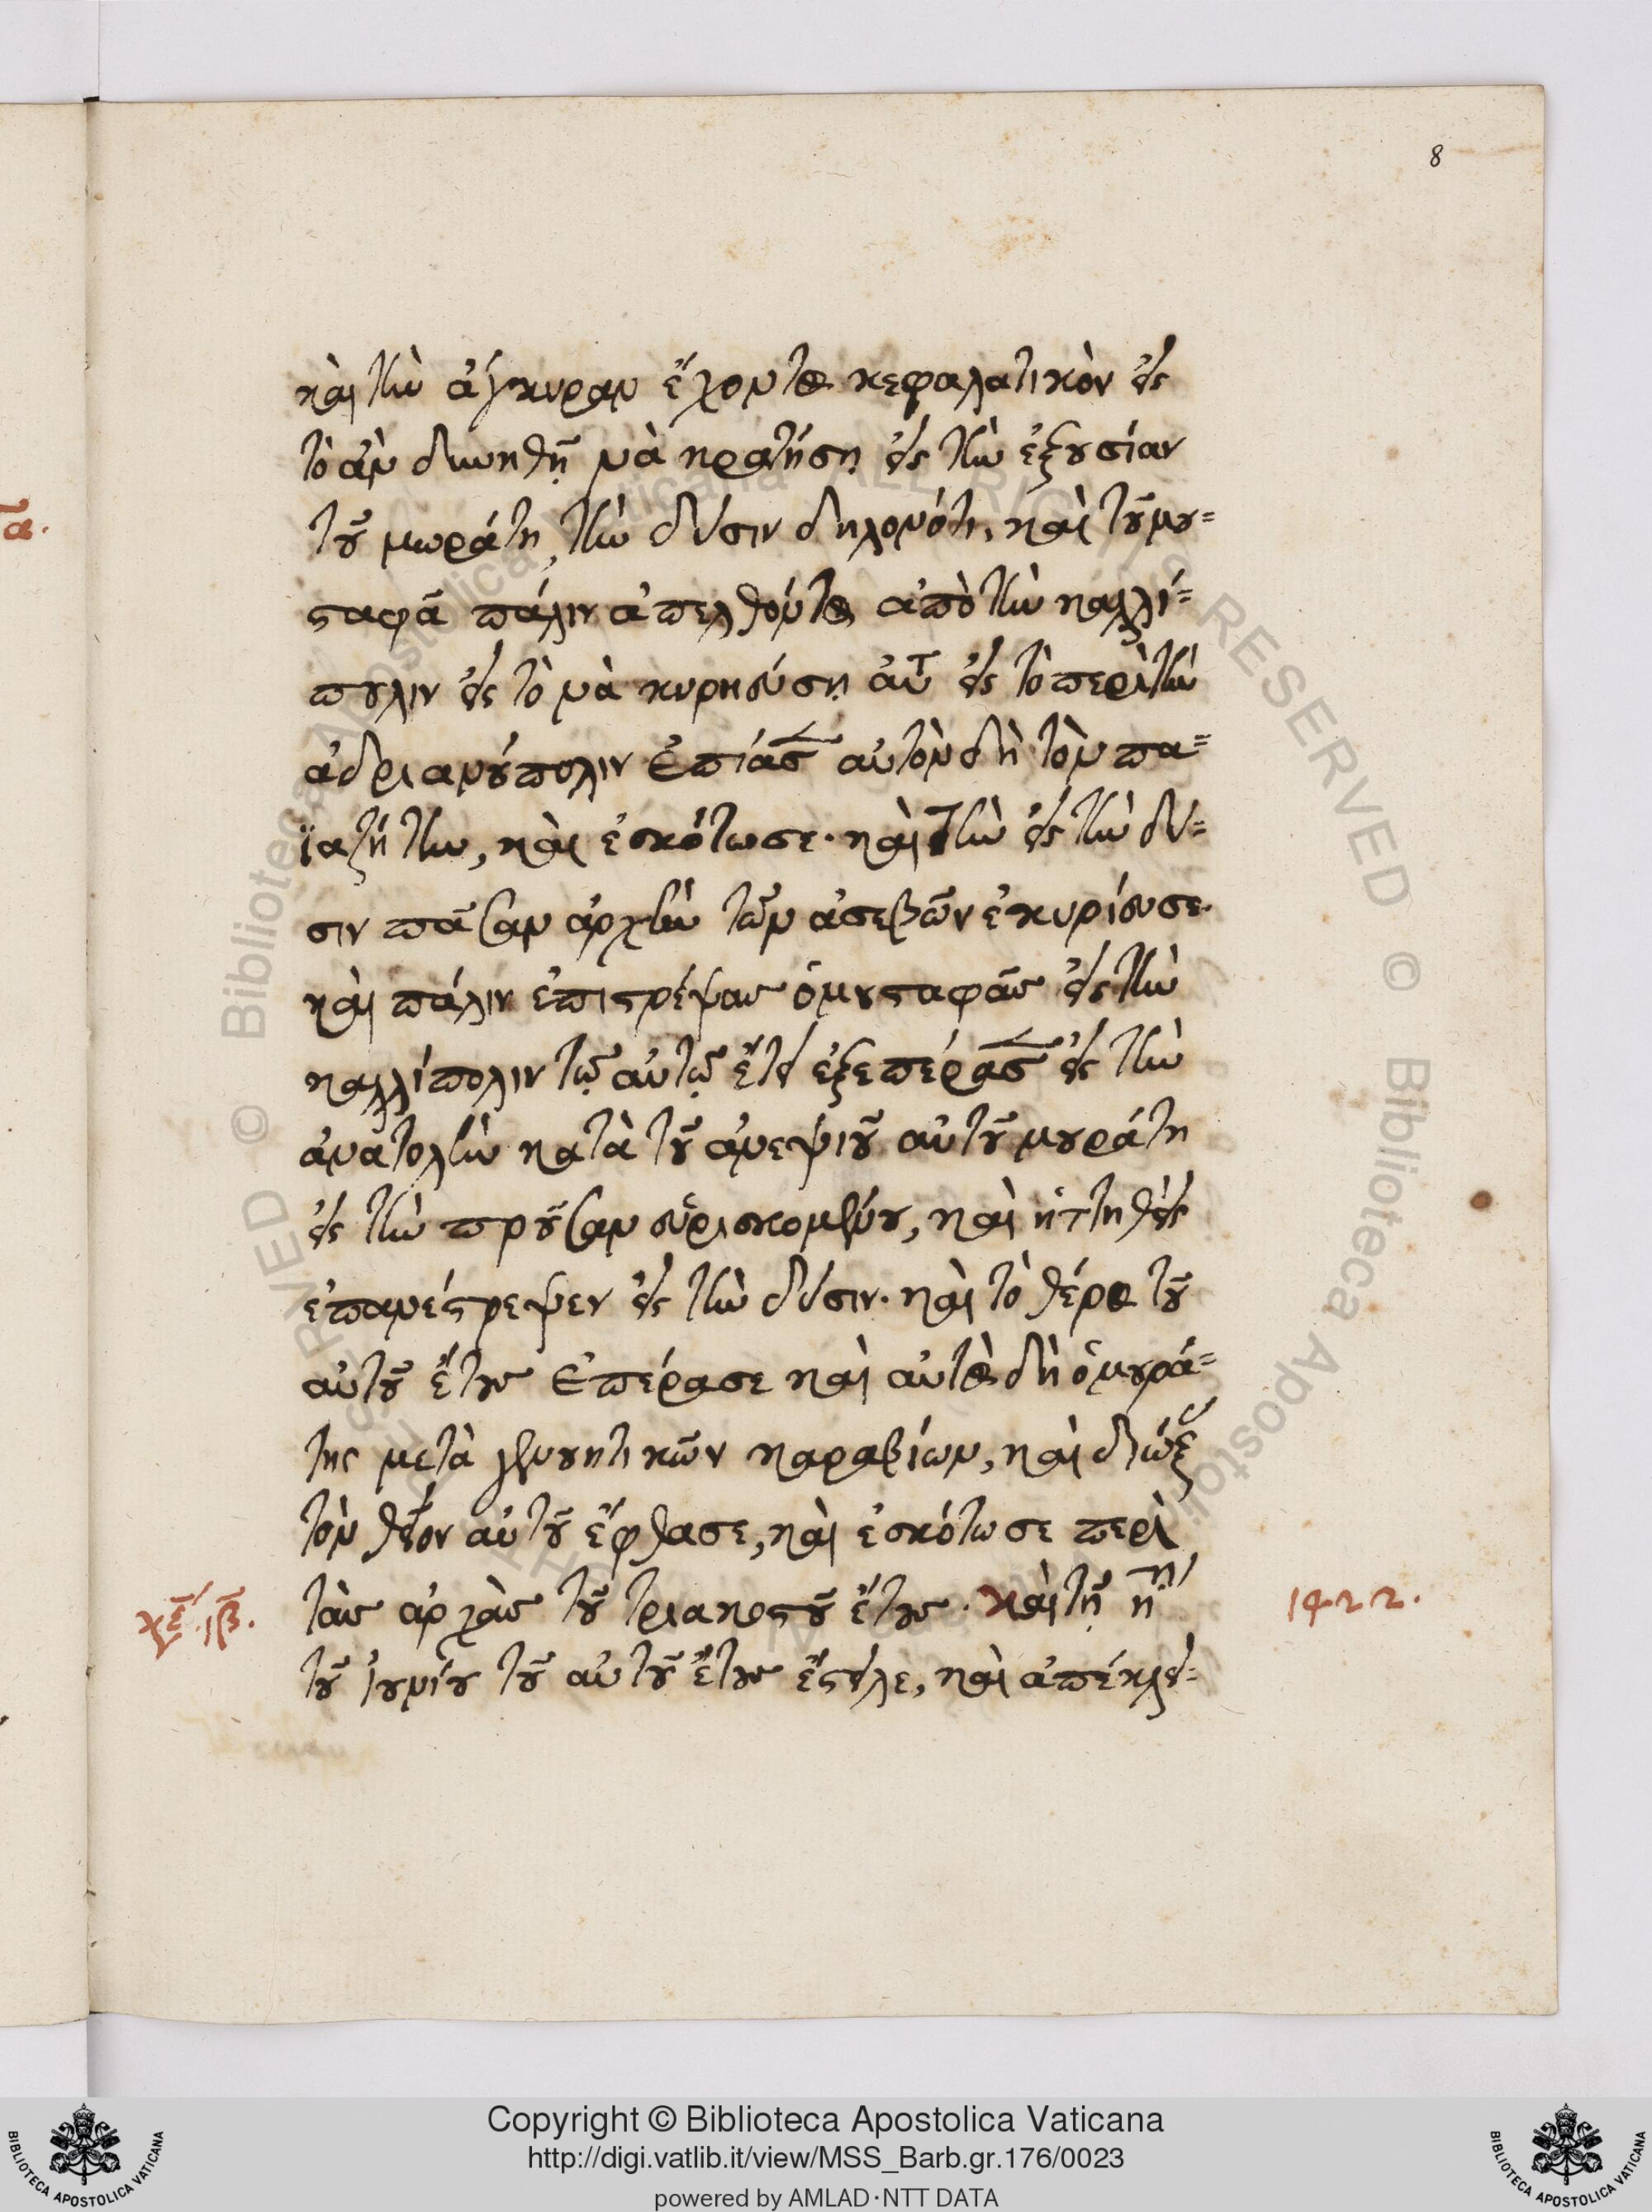 8
καὶ τὴν ἄγκυραν ἔχοντος κεφαλατικὸν εἰς
τὸ ἂν δυνηθῇ νὰ κρατήσῃ εἰς τὴν ἐξουσίαν
τοῦ μωράτη, τὴν δύσιν δηλονότι, καὶ τοῦ μου=
σταφᾶ πάλιν ἀπελθόντος ἀπὸ τὴν καλλί=
πολιν εἰς τὸ νὰ κυριεύσῃ αὐτ εἰς τὸ περὶ τὴν
ἀδριανούπολιν ἐπίασε αὐτὸν δὴ τὸν πα=
ϊαζήτην, καὶ ἐσκότωσε. καὶ τὴν εἰς τὴν δύ=
σιν πᾶσαν ἀρχὴν τῶν ἀσεβῶν ἐκυρίευσε.
καὶ πάλιν ἐπιστρέψας ὁ μουσταφᾶς εἰς τὴν
καλλίπολιν τῷ αὐτῷ ἔτει ἐξεπέρασε εἰς τὴν
ἀνατολὴν κατὰ τοῦ ἀνεψιοῦ αὐτοῦ μουράτη
εἰς τὴν προῦσαν εὑρισκομένου, καὶ ἡττηθεὶς
ἐπανέστρεψεν εἰς τὴν δύσιν. καὶ τὸ θέρος τοῦ
αὐτοῦ ἔτους ἐπέρασε καὶ αὐτὸς δὴ ὁ μουρά=
της μετὰ γενουητικῶν καραβίων, καὶ διώξας
τὸν θεῖον αὐτοῦ ἔφθασε, καὶ ἐσκότωσε περὶ
τὰς ἀρχὰς τοῦ τριακοστοῦ ἔτους. καὶ τῇ η
τοῦ ἰουνίου τοῦ αὐτοῦ ἔτους ἔστειλε, καὶ ἀπέκλει=
ιβ.
1422.
Copyright © Biblioteca Apostolica Vaticana
http://digi.vatlib.it/view/MSS_Barb.gr.176/0023
powered by AMLAD·NTT DATA
BIBLIOTECA APOSTOLICA VATICANA
BIBLIOTECA APOSTOLICA VATICANA